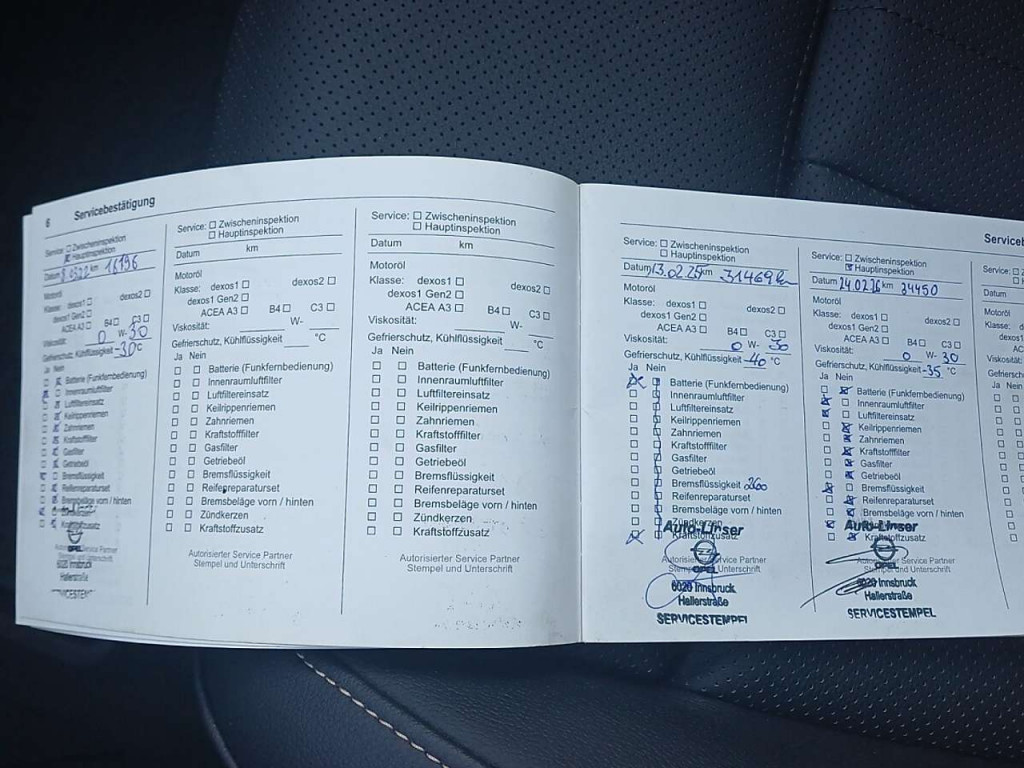 6 Servicebestätigung
Service: ☐ Zwischeninspektion
☒ Hauptinspektion
Datum km 16796
Motoröl
Klasse: dexos1 ☐ dexos2 ☐
dexos1 Gen2 ☐
ACEA A3 ☐ B4 ☐ C3 ☐
Viskosität: 0 W- 30
Gefrierschutz, Kühlflüssigkeit -30 °C
Ja Nein
Batterie (Funkfernbedienung)
Innenraumluftfilter
Luftfiltereinsatz
Keilrippenriemen
Zahnriemen
Kraftstofffilter
Gasfilter
Getriebeöl
Bremsflüssigkeit
Reifenreparaturset
Bremsbeläge vorn / hinten
Zündkerzen
Kraftstoffzusatz
Autorisierter Service Partner
OPEL
6020 Innsbruck
Hallerstraße
SERVICESTEMPEL
Service: ☐ Zwischeninspektion
☐ Hauptinspektion
Datum km
Motoröl
Klasse: dexos1 ☐ dexos2 ☐
dexos1 Gen2 ☐
ACEA A3 ☐ B4 ☐ C3 ☐
Viskosität: W-
Gefrierschutz, Kühlflüssigkeit °C
Ja Nein
☐ ☐ Batterie (Funkfernbedienung)
☐ ☐ Innenraumluftfilter
☐ ☐ Luftfiltereinsatz
☐ ☐ Keilrippenriemen
☐ ☐ Zahnriemen
☐ ☐ Kraftstofffilter
☐ ☐ Gasfilter
☐ ☐ Getriebeöl
☐ ☐ Bremsflüssigkeit
☐ ☐ Reifenreparaturset
☐ ☐ Bremsbeläge vorn / hinten
☐ ☐ Zündkerzen
☐ ☐ Kraftstoffzusatz
Autorisierter Service Partner
Stempel und Unterschrift
Service: ☐ Zwischeninspektion
☐ Hauptinspektion
Datum km
Motoröl
Klasse: dexos1 ☐ dexos2 ☐
dexos1 Gen2 ☐
ACEA A3 ☐ B4 ☐ C3 ☐
Viskosität: W-
Gefrierschutz, Kühlflüssigkeit °C
Ja Nein
☐ ☐ Batterie (Funkfernbedienung)
☐ ☐ Innenraumluftfilter
☐ ☐ Luftfiltereinsatz
☐ ☐ Keilrippenriemen
☐ ☐ Zahnriemen
☐ ☐ Kraftstofffilter
☐ ☐ Gasfilter
☐ ☐ Getriebeöl
☐ ☐ Bremsflüssigkeit
☐ ☐ Reifenreparaturset
☐ ☐ Bremsbeläge vorn / hinten
☐ ☐ Zündkerzen
☐ ☐ Kraftstoffzusatz
Autorisierter Service Partner
Stempel und Unterschrift
Service: ☐ Zwischeninspektion
☐ Hauptinspektion
Datum 13.02.25 km 31469
Motoröl
Klasse: dexos1 ☐ dexos2 ☐
dexos1 Gen2 ☐
ACEA A3 ☐ B4 ☐ C3 ☐
Viskosität: 0 W- 30
Gefrierschutz, Kühlflüssigkeit -40 °C
Ja Nein
Batterie (Funkfernbedienung)
Innenraumluftfilter
Luftfiltereinsatz
Keilrippenriemen
Zahnriemen
Kraftstofffilter
Gasfilter
Getriebeöl
Bremsflüssigkeit 260
Reifenreparaturset
Bremsbeläge vorn / hinten
Zündkerzen
Kraftstoffzusatz
Auto-Linser
Autorisierter Service Partner
Stempel und Unterschrift
OPEL
6020 Innsbruck
Hallerstraße
SERVICESTEMPEL
Service: ☐ Zwischeninspektion
☒ Hauptinspektion
Datum 24.02.26 km 34450
Motoröl
Klasse: dexos1 ☐ dexos2 ☐
dexos1 Gen2 ☐
ACEA A3 ☐ B4 ☐ C3 ☐
Viskosität: 0 W- 30
Gefrierschutz, Kühlflüssigkeit -35 °C
Ja Nein
Batterie (Funkfernbedienung)
Innenraumluftfilter
Luftfiltereinsatz
Keilrippenriemen
Zahnriemen
Kraftstofffilter
Gasfilter
Getriebeöl
Bremsflüssigkeit
Reifenreparaturset
Bremsbeläge vorn / hinten
Zündkerzen
Kraftstoffzusatz
Auto-Linser
Autorisierter Service Partner
Stempel und Unterschrift
OPEL
6020 Innsbruck
Hallerstraße
SERVICESTEMPEL
Serviceb
Service: ☐
Datum
Motoröl
Klasse: d
Viskosität:
Gefriersch
Ja Nein